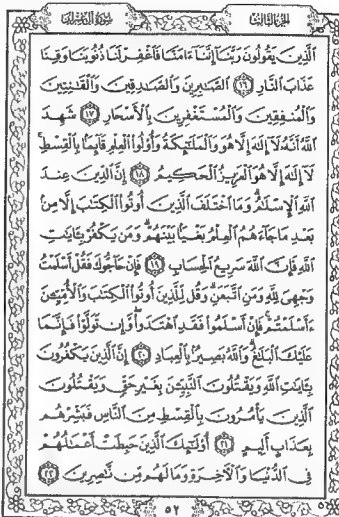 الجزء الثالث سورة آل عمران
ٱلَّذِينَ يَقُولُونَ رَبَّنَآ إِنَّنَآ ءَامَنَّا فَٱغْفِرْ لَنَا ذُنُوبَنَا وَقِنَا
عَذَابَ ٱلنَّارِ ١٦ ٱلصَّٰبِرِينَ وَٱلصَّٰدِقِينَ وَٱلْقَٰنِتِينَ
وَٱلْمُنفِقِينَ وَٱلْمُسْتَغْفِرِينَ بِٱلْأَسْحَارِ ١٧ شَهِدَ
ٱللَّهُ أَنَّهُۥ لَآ إِلَٰهَ إِلَّا هُوَ وَٱلْمَلَٰٓئِكَةُ وَأُو۟لُوا۟ ٱلْعِلْمِ قَآئِمًۢا بِٱلْقِسْطِ
لَآ إِلَٰهَ إِلَّا هُوَ ٱلْعَزِيزُ ٱلْحَكِيمُ ١٨ إِنَّ ٱلدِّينَ عِندَ
ٱللَّهِ ٱلْإِسْلَٰمُ وَمَا ٱخْتَلَفَ ٱلَّذِينَ أُوتُوا۟ ٱلْكِتَٰبَ إِلَّا مِنۢ
بَعْدِ مَا جَآءَهُمُ ٱلْعِلْمُ بَغْيًۢا بَيْنَهُمْ وَمَن يَكْفُرْ بِـَٔايَٰتِ
ٱللَّهِ فَإِنَّ ٱللَّهَ سَرِيعُ ٱلْحِسَابِ ١٩ فَإِنْ حَآجُّوكَ فَقُلْ أَسْلَمْتُ
وَجْهِىَ لِلَّهِ وَمَنِ ٱتَّبَعَنِ وَقُل لِّلَّذِينَ أُوتُوا۟ ٱلْكِتَٰبَ وَٱلْأُمِّيِّـۧنَ
ءَأَسْلَمْتُمْ فَإِنْ أَسْلَمُوا۟ فَقَدِ ٱهْتَدَوا۟ وَّإِن تَوَلَّوْا۟ فَإِنَّمَا
عَلَيْكَ ٱلْبَلَٰغُ وَٱللَّهُ بَصِيرٌۢ بِٱلْعِبَادِ ٢٠ إِنَّ ٱلَّذِينَ يَكْفُرُونَ
بِـَٔايَٰتِ ٱللَّهِ وَيَقْتُلُونَ ٱلنَّبِيِّـۧنَ بِغَيْرِ حَقٍّ وَيَقْتُلُونَ
ٱلَّذِينَ يَأْمُرُونَ بِٱلْقِسْطِ مِنَ ٱلنَّاسِ فَبَشِّرْهُم
بِعَذَابٍ أَلِيمٍ ٢١ أُو۟لَٰٓئِكَ ٱلَّذِينَ حَبِطَتْ أَعْمَٰلُهُمْ
فِى ٱلدُّنْيَا وَٱلْأَٓخِرَةِ وَمَا لَهُم مِّن نَّٰصِرِينَ ٢٢
٥٢